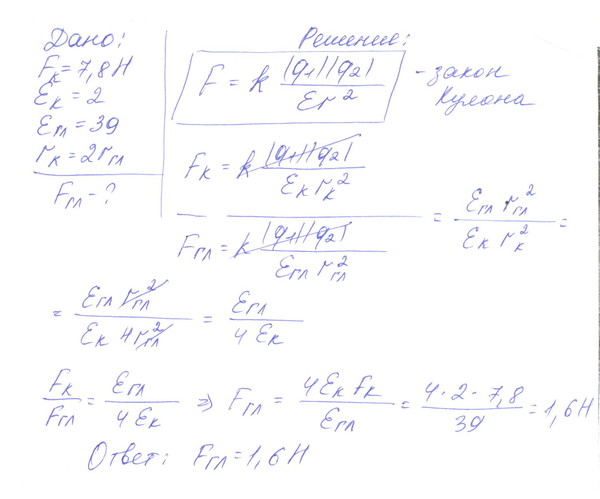 Дано:
Fк = 7,8 Н
Ɛк = 2
Ɛгл = 39
rк = 2rгл
Fгл - ?
Решение:
F = k |q1||q2| / Ɛr² - закон Кулона
Fк = k |q1||q2| / Ɛк rк²
Fгл = k |q1||q2| / Ɛгл rгл²
= Ɛгл rгл² / Ɛк rк² =
= Ɛгл rгл² / Ɛк 4rгл² = Ɛгл / 4Ɛк
Fк / Fгл = Ɛгл / 4Ɛк => Fгл = 4Ɛк Fк / Ɛгл = 4·2·7,8 / 39 = 1,6 Н
Ответ: Fгл = 1,6 Н